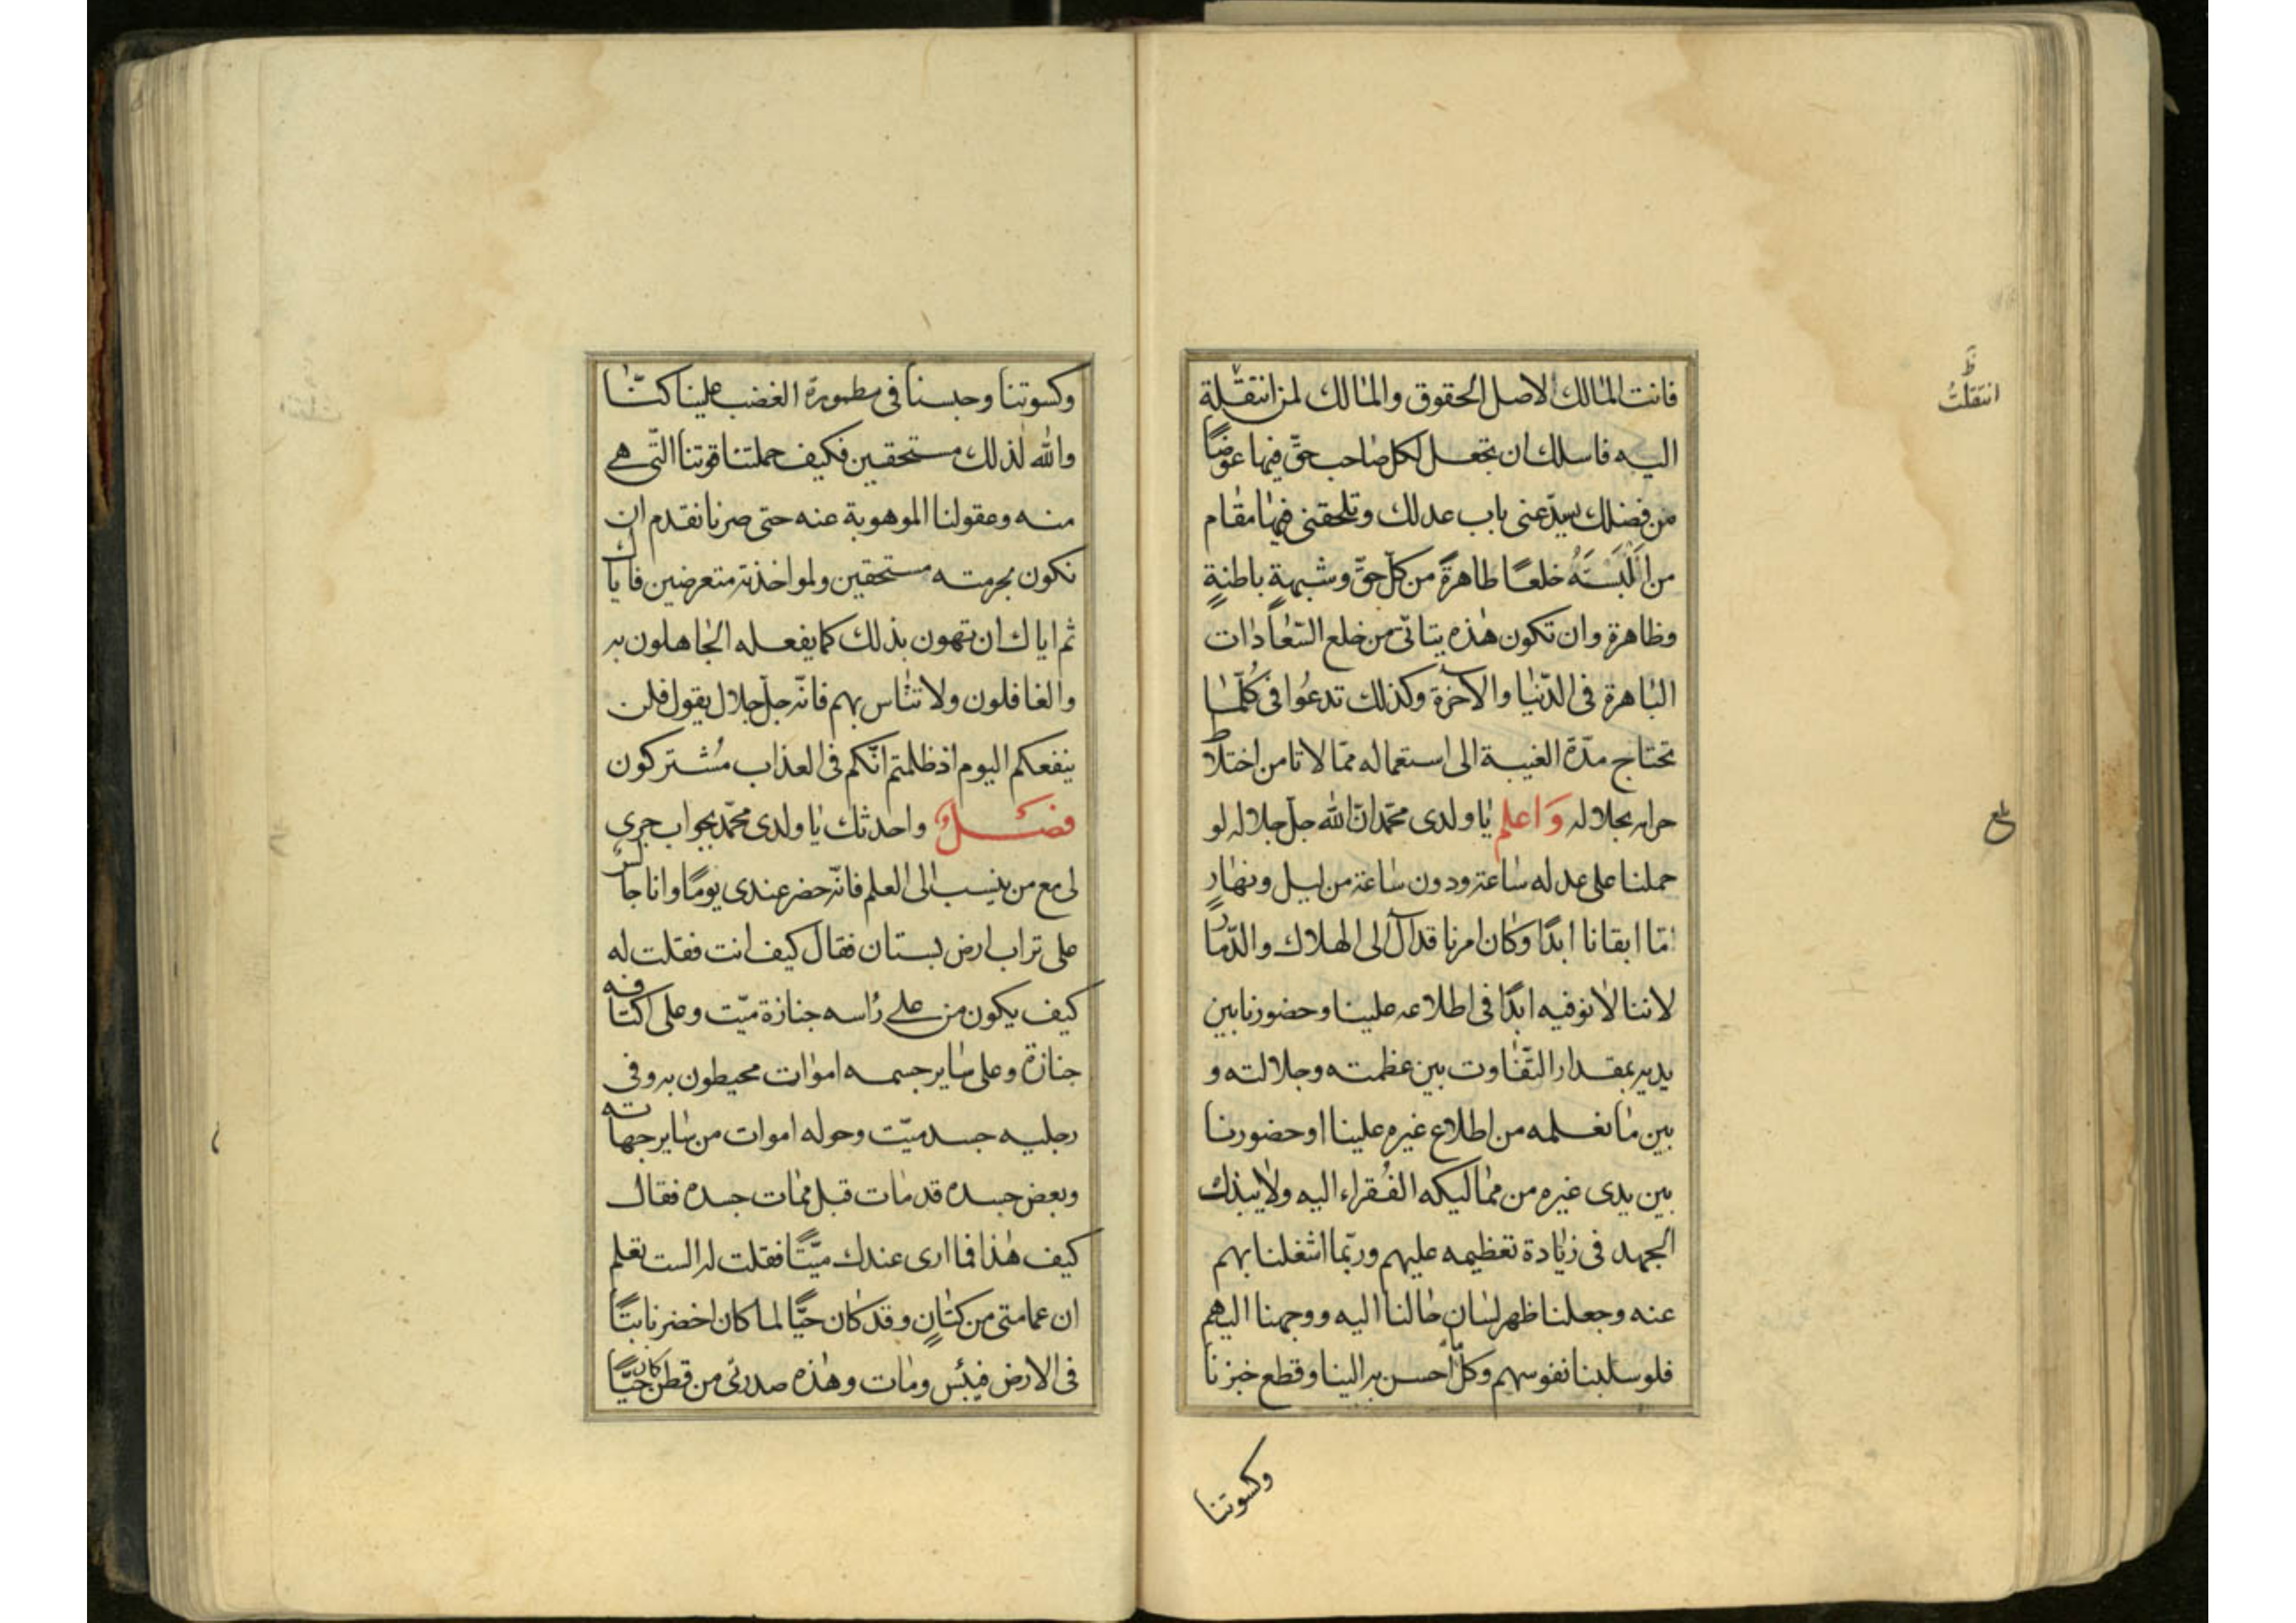 فانت المالك لاصل الحقوق والمالك لمن انتقلة
انتقلتُ
اليه فاسلك ان تجعل لكل صاحب حقّ فيها عوضًا
من فضلك يسدّ عنى باب عدلك وتلحقنى فيها مقام
من البَسْتَهُ خلعًا طاهرةً من كلّ حقّ وشبهةٍ باطنةٍ
وظاهرة وان تكون هذه يتاتّى من خلع السّعادات
الباهرة فى الدّنيا والآخرة وكذلك تدعُوا فى كُلّما
تحتاج مدّة الغيبة الى استعماله ممّا لاتامن اختلاط
حرامه بحلاله وَاعلم يا ولدى محمّد انّ الله جلّ جلاله لو
حملنا على عدله ساعة ودون ساعة من ليل ونهارٍ
ما ابقانا ابدًا وكان امرنا قد آل الى الهلاك والدّمار
لاننا لا نوفيه ابدًا فى اطلاعه علينا وحضورنا بين
يديه بمقدار التّفاوت بين عظمته وجلالته و
بين ما نعلمه من اطلاع غيره علينا او حضورنا
بين يدى غيره من مماليكه الفُقراء اليه ولا يبذك
الجهد فى زيادة تعظيمه عليهم وربّما اشغلنا بهم
عنه وجعلنا ظهر لسان حالنا اليه ووجهنا اليهم
فلو سلبنا نفوسهم وكلّ احسن به الينا وقطع خبزنا
وكسوتنا
وكسوتنا وحبسنا فى مطمورة الغضب علينا كنّا
والله لذلك مستحقين فكيف حملتنا قوتنا الّتى هى
منه وعقولنا الموهوبة عنه حتى صرنا نقدم ان
نكون بحرمته مستحقين ولمواخذته متعرضين فاياك
ثم اياك ان تهون بذلك كما يفعله الجاهلون به
والغافلون ولا تتاس بهم فانّه جلّ جلاله يقول فلن
ينفعكم اليوم اذ ظلمتم انّكم فى العذاب مُشتركون
فصل واحدثك يا ولدى محمّد بجواب جرى
لى مع من ينسب الى العلم فانّه حضر عندى يومًا وانا جالس
على تراب ارض بستان فقال كيف انت فقلت له
كيف يكون من على راسه جنازة ميّت وعلى اكتافه
جنازة وعلى ساير جسمه اموات محيطون به وفى
رجليه جسد ميّت وحوله اموات من ساير جهاته
وبعض جسده قد مات قبل ممات جسده فقال
كيف هذا فما ارى عندك ميّتًا فقلت له الست تعلم
ان عمامتى من كتانٍ وقد كان حيًّا لما كان اخضر نابتًا
فى الارض فيبس ومات وهذه صدرتى من قطن كان حيًّا